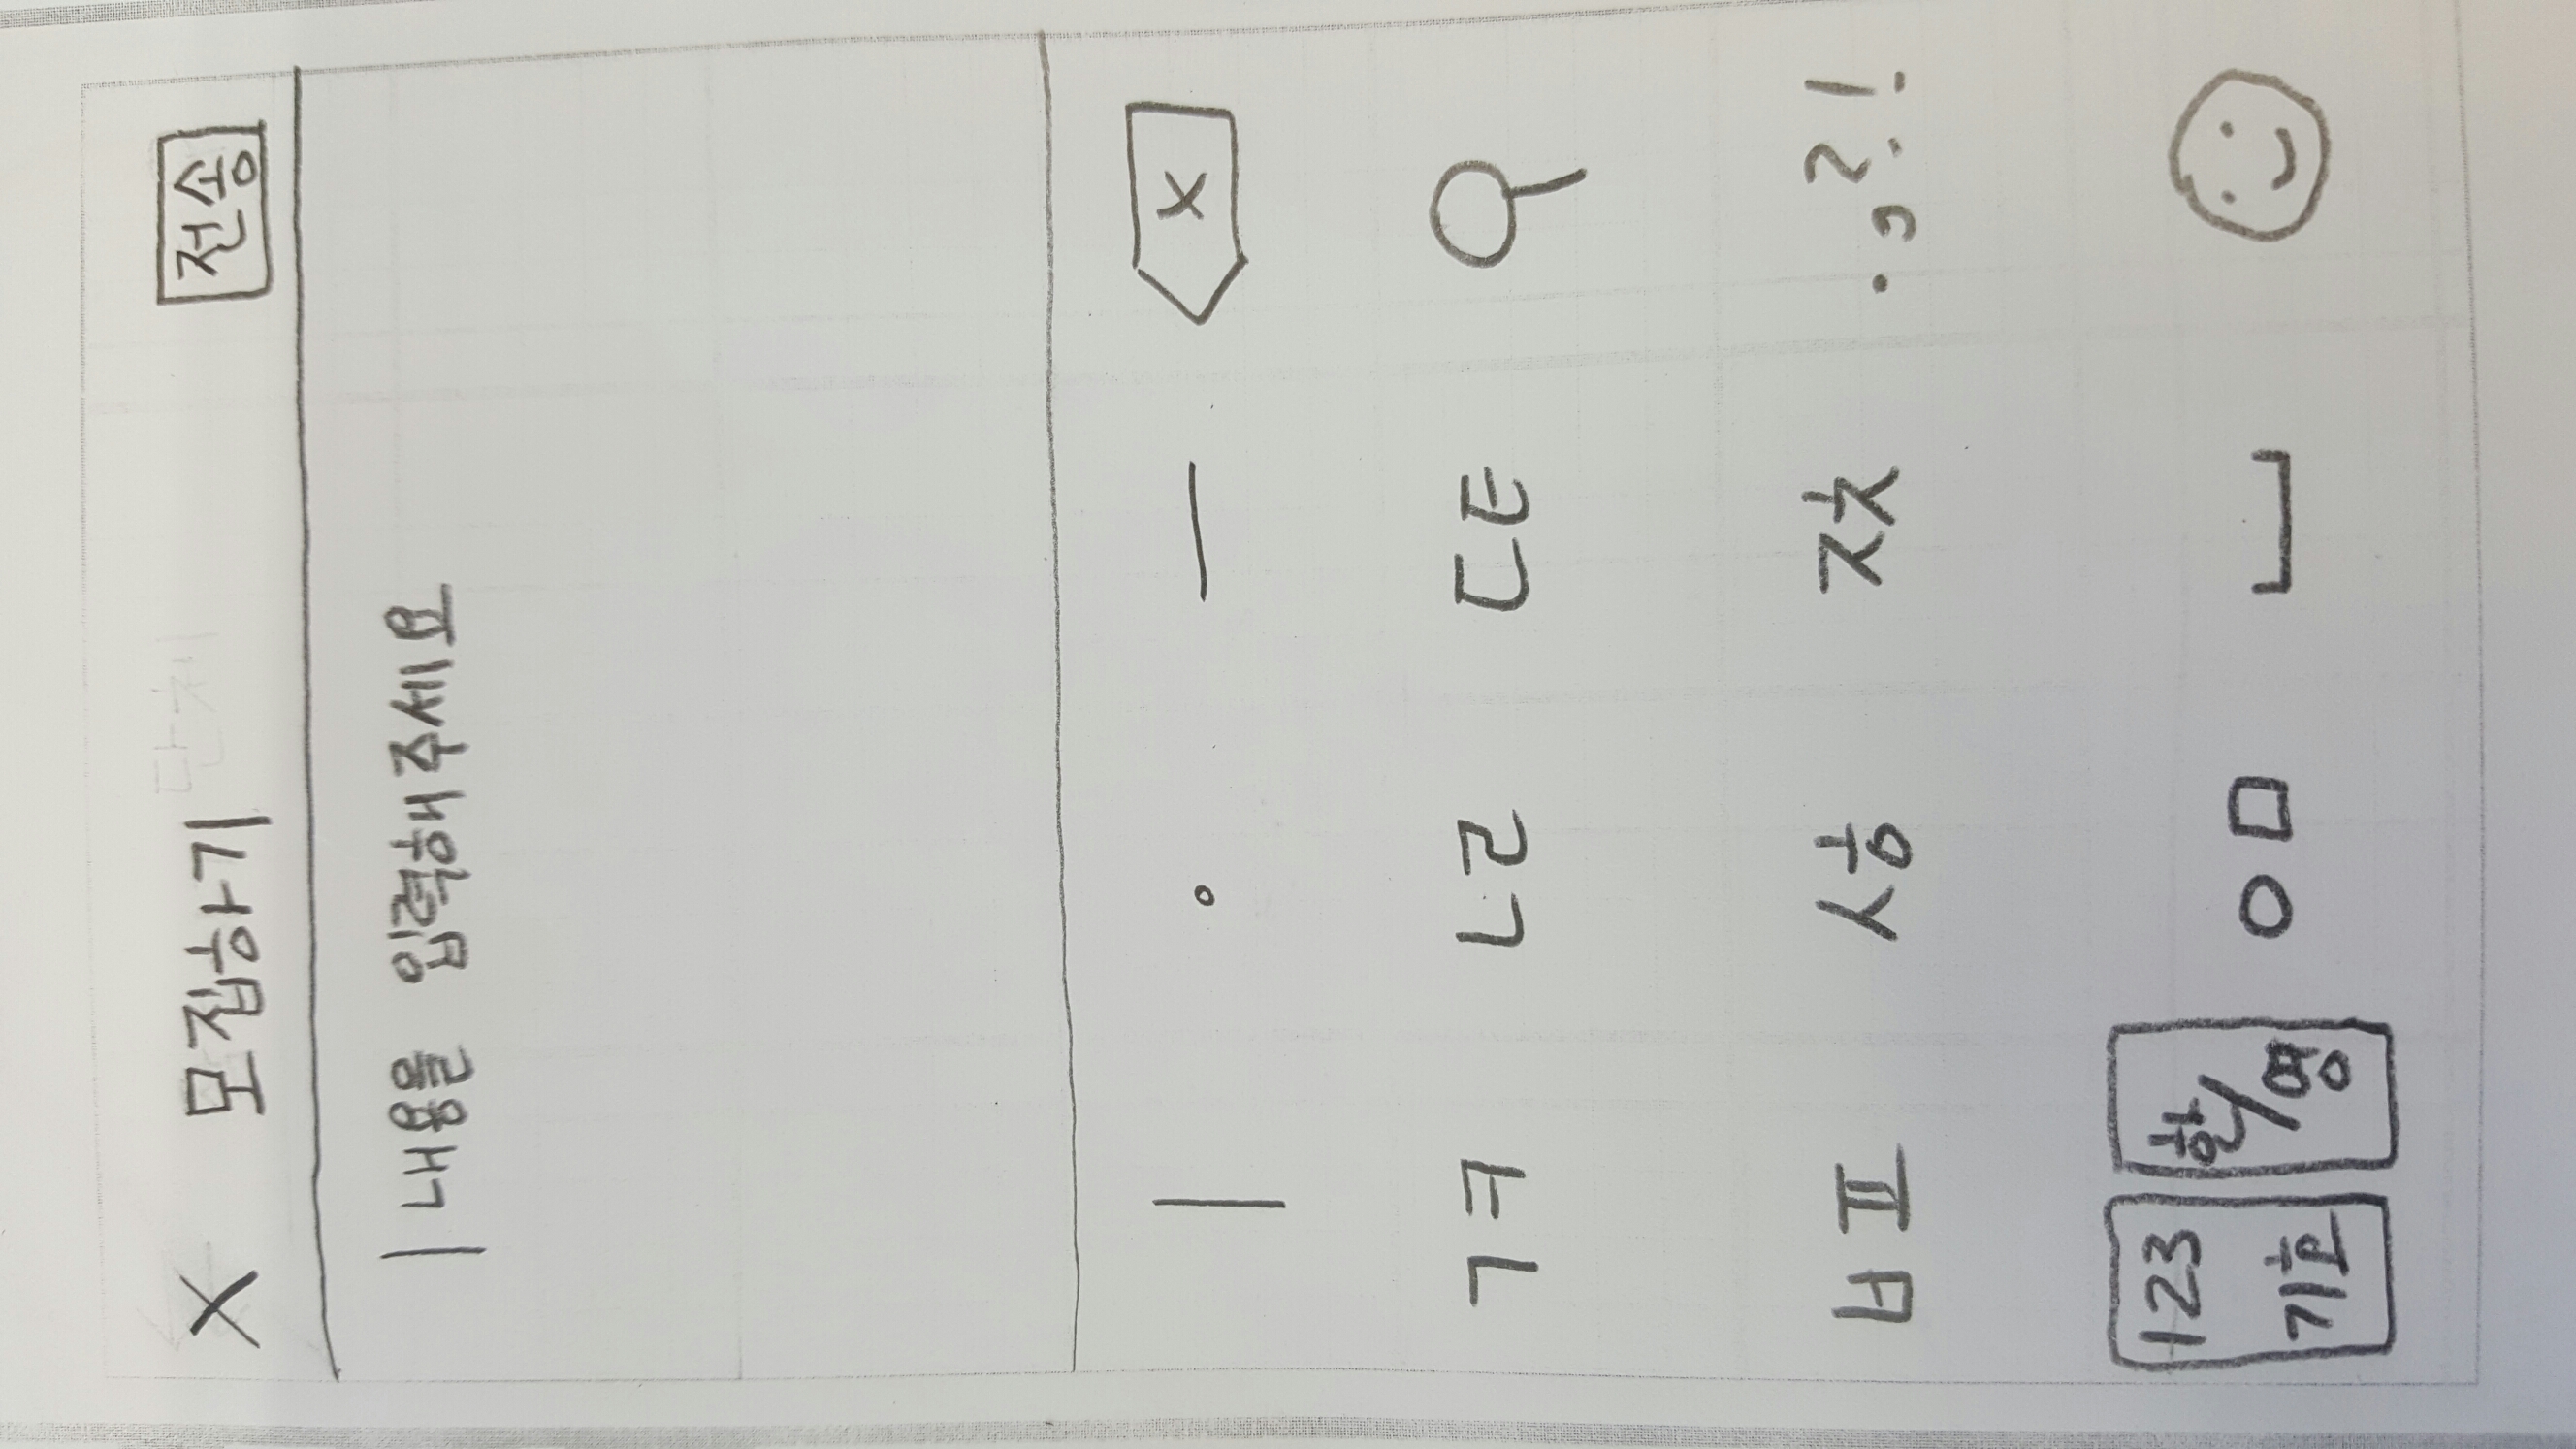 X 모집하기 단체 전송
내용을 입력해주세요
ㅣ ㆍ ㅡ X
ㄱㅋ ㄴㄹ ㄷㅌ
ㅂㅍ ㅅㅎ ㅈㅊ .,?!
123 한/영 ㅇㅁ
기호